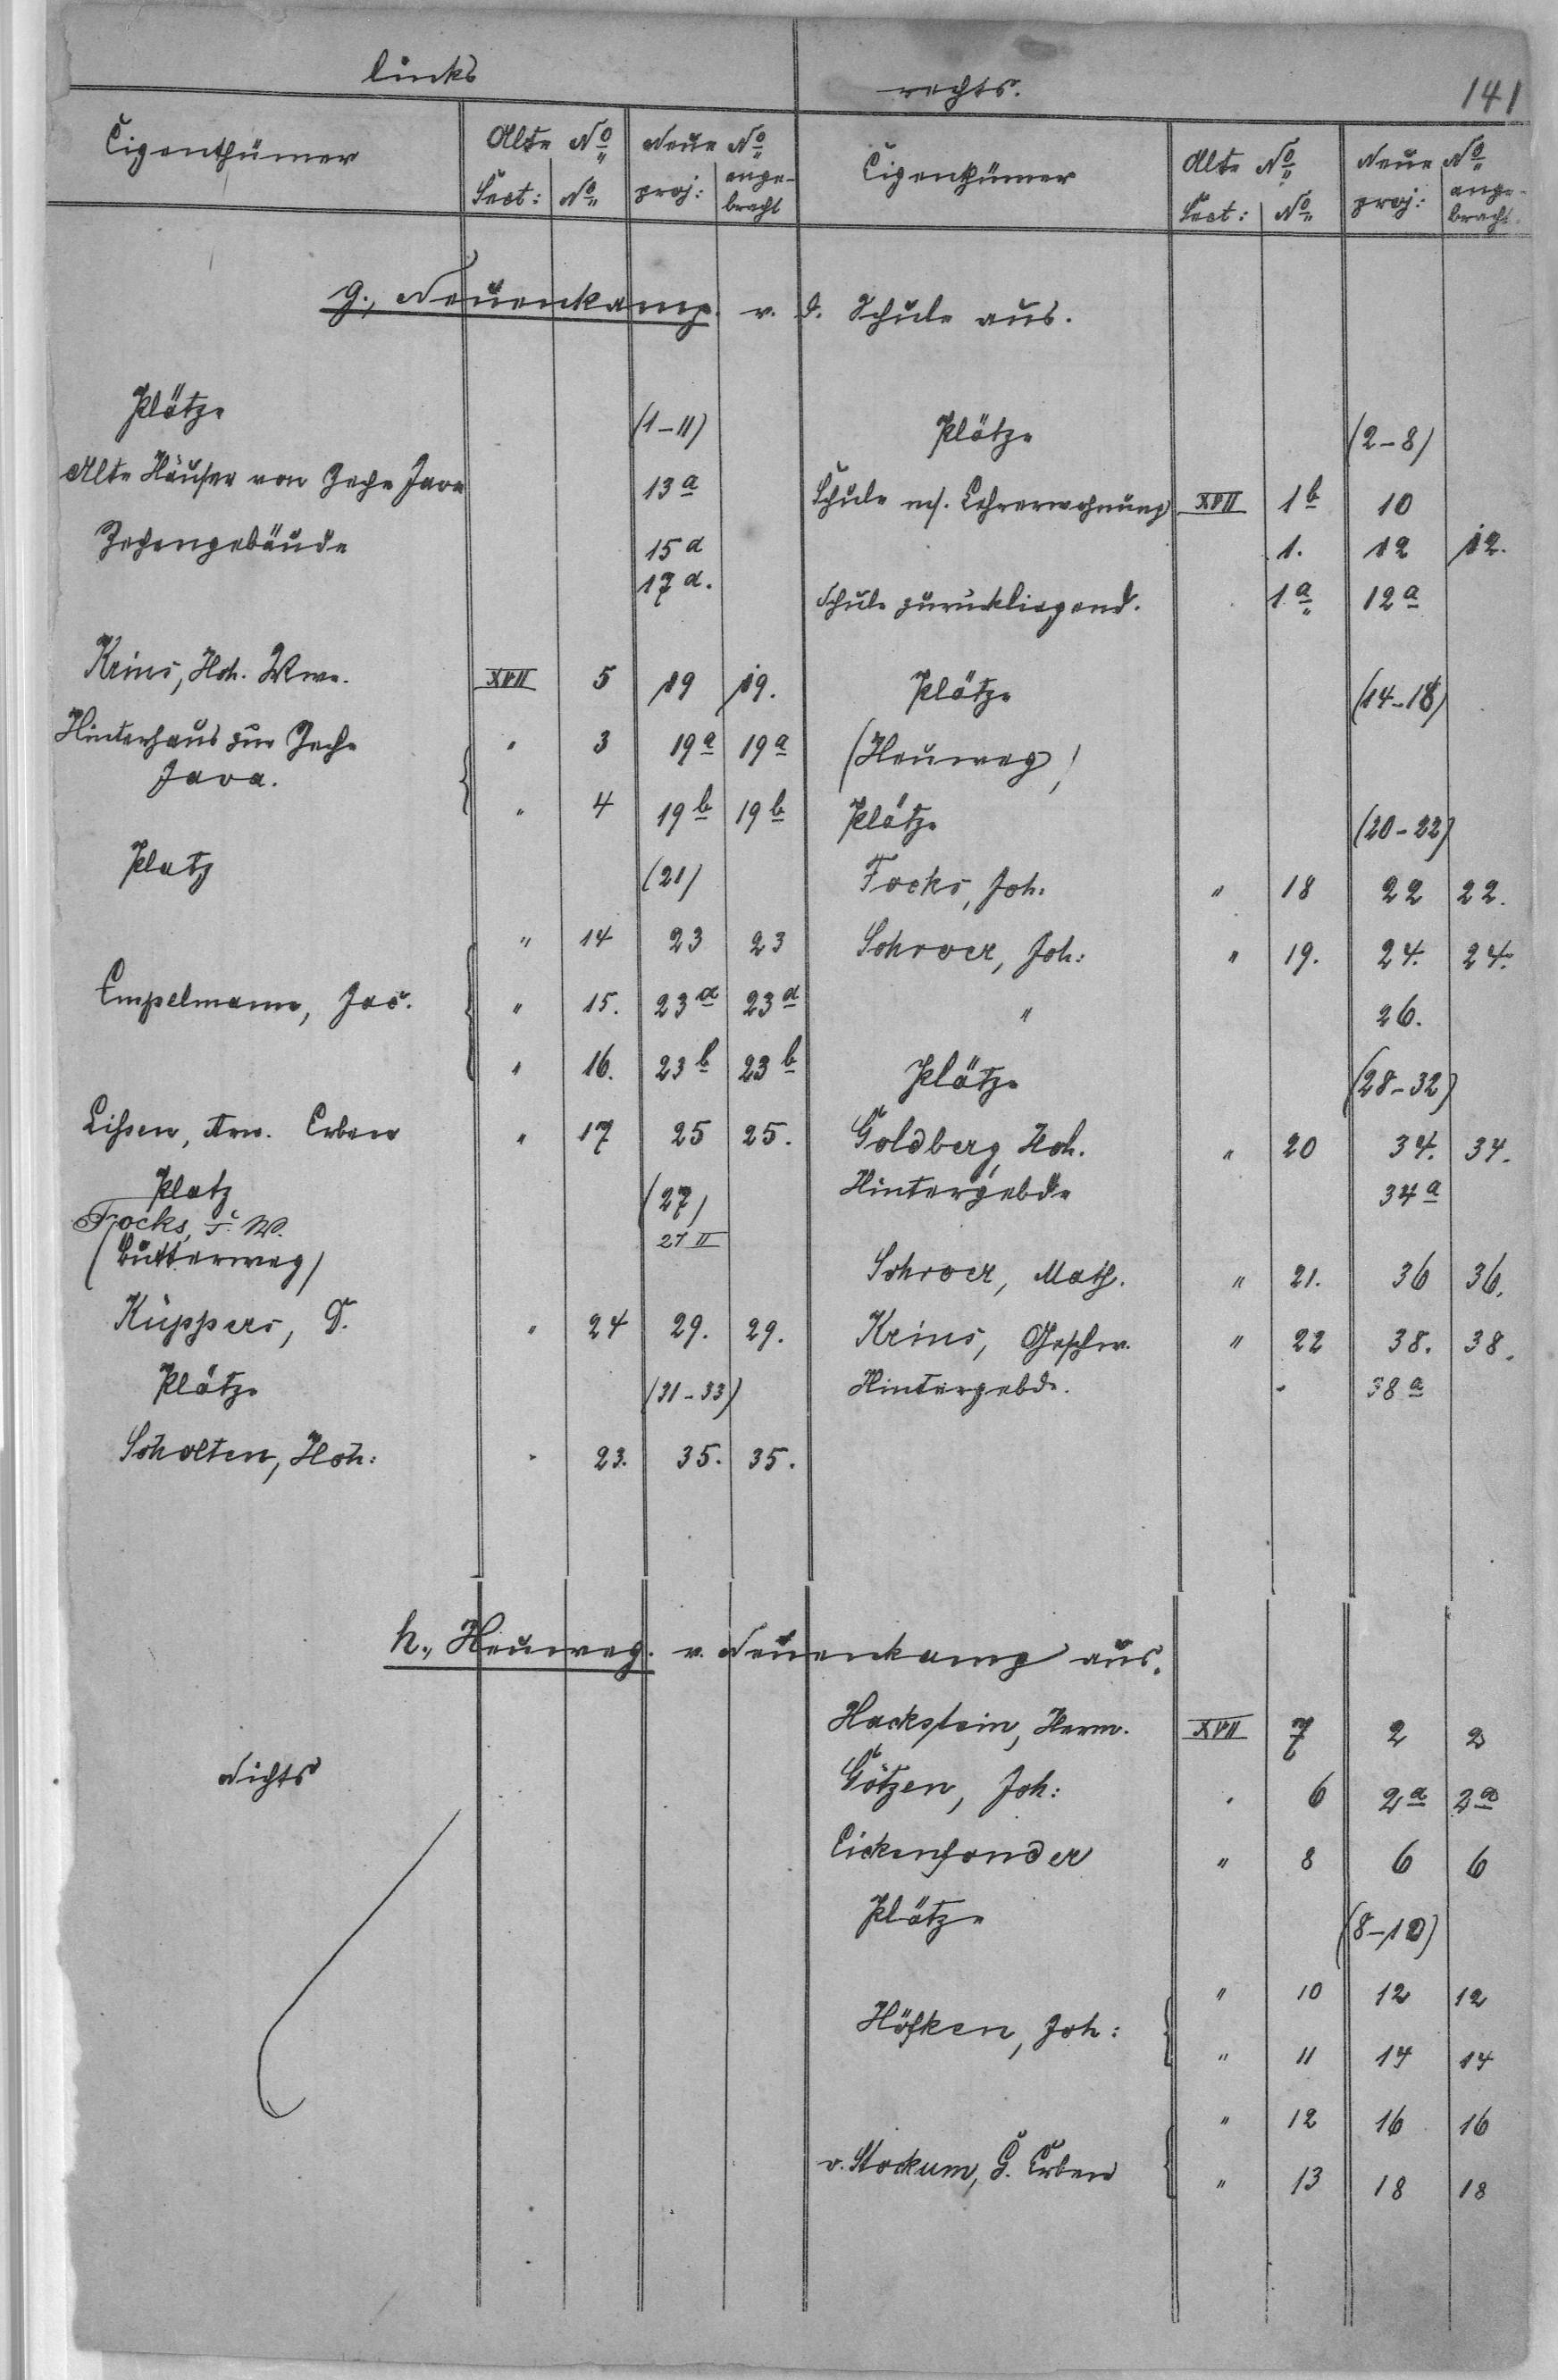 links
rechts.
141
Eigenthümer | Alte No | Neue No | Eigenthümer | Alte No | Neue No
Sect: | No | proj: | ange-bracht | Sect: | No | proj: | ange-bracht.
g., Neuenkamp. v. d. Schule aus.
Plätze | (1-11) | Plätze | (2-8)
Alte Häuser von Zeche Java | 13a | Schule m/. Lehrerwohnung | XVII | 1b | 10
Zechengebäude | 15a | 1. | 12 | 12.
17a. | Schule zurückliegend. | 1a | 12a
Krins, Hch. Wwe. | XVII | 5 | 19 | 19. | Plätze | (14-18)
Hinterhaus zur Zeche | " | 3 | 19a | 19a | (Heuweg)
Java.
" | 4 | 19b | 19b | Plätze | (20-22)
Platz | (21) | Focks, Joh. | " | 18 | 22 | 22.
" | 14 | 23 | 23 | Schroer, Joh: | " | 19. | 24. | 24.
Empelmann, Jac. | " | 15. | 23a | 23a | " | 26.
" | 16. | 23b | 23b | Plätze | (28-32)
Lissen, Arn. Erben | " | 17 | 25 | 25. | Goldberg, Hch. | " | 20 | 34. | 34.
Platz | (27) | Hintergebde | 34a
Focks, F. W. | 27 II
(Butterweg) | Schroer, Math. | " | 21. | 36 | 36.
Küppers, D. | " | 24 | 29. | 29. | Krins, Geschw. | " | 22 | 38. | 38.
Plätze | (31-33) | Hintergebde. | " | 38a
Scholten, Hch: | " | 23. | 35. | 35.
h., Heuweg. v. Neuenkamp aus.
Hackstein, Herm. | XVII | 7 | 2 | 2
Nichts | Götzen, Joh: | " | 6 | 2a | 2a
Eickensonder | " | 8 | 6 | 6
Plätze | (8-10)
" | 10 | 12 | 12
Höfken, Joh:
" | 11 | 14 | 14
" | 12 | 16 | 16
v. Stockum, G. Erben
" | 13 | 18 | 18